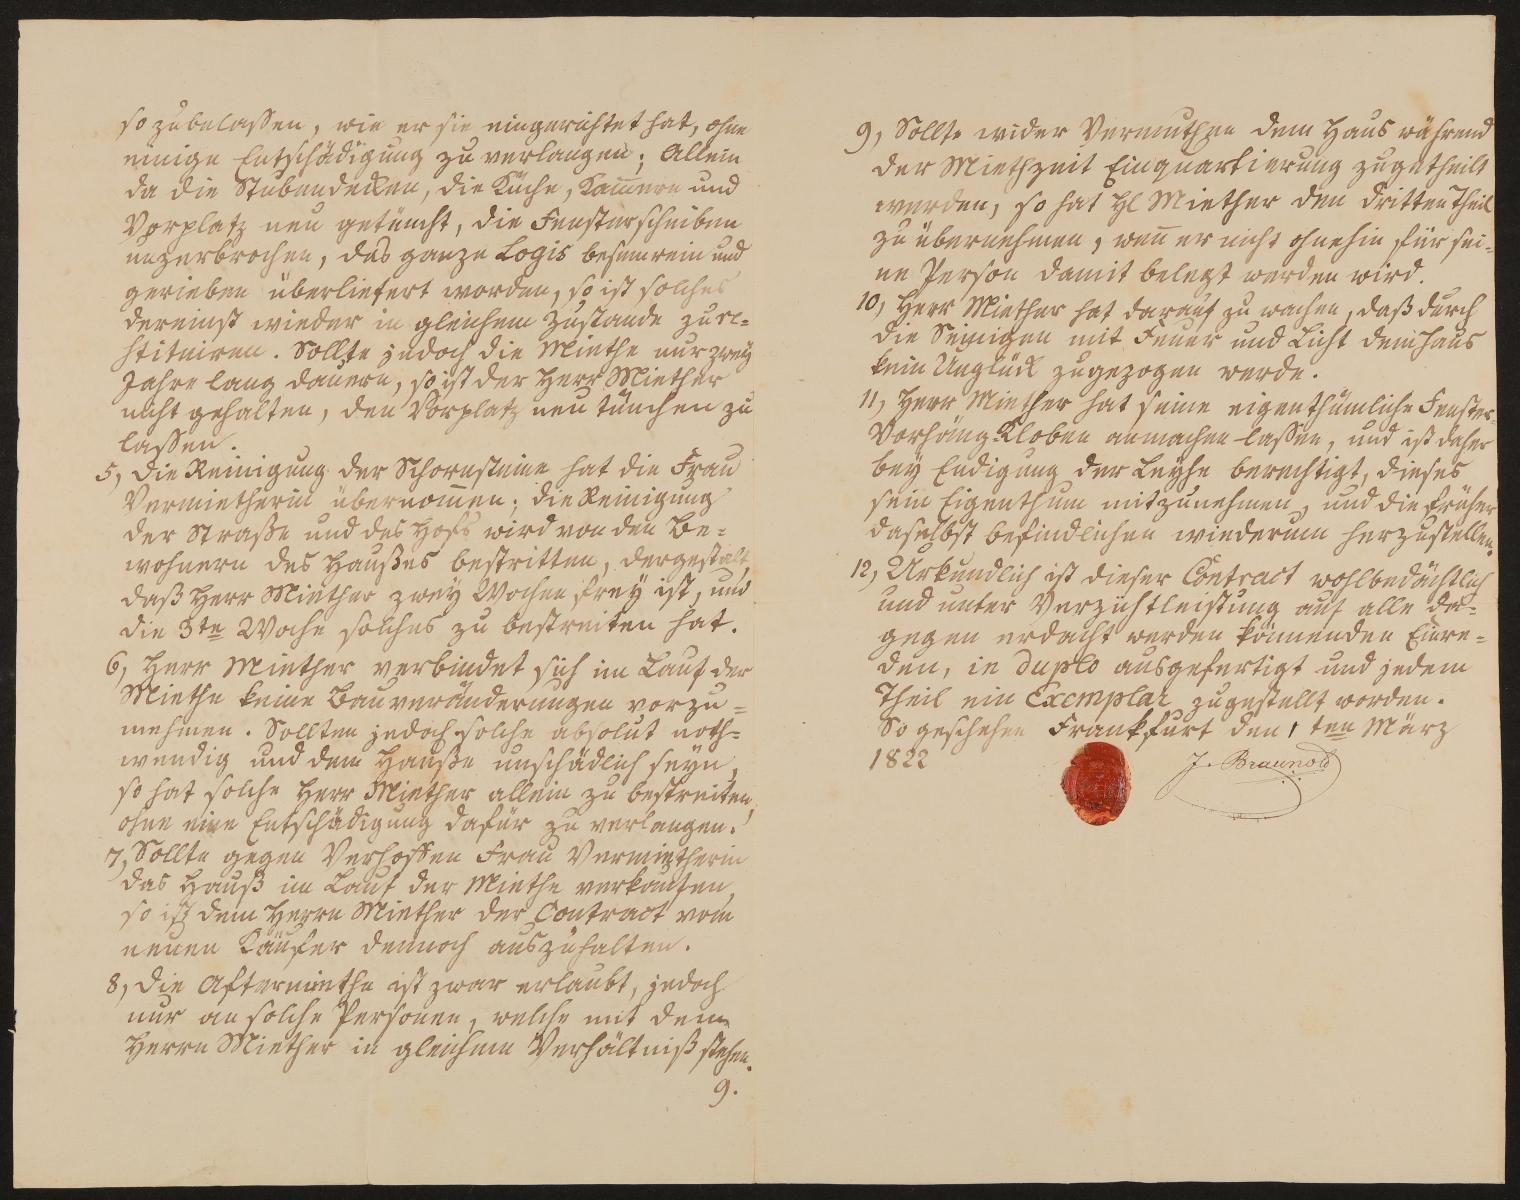 so zu belassen, wie er sie eingerichtet hat, ohne
einige Entschädigung zu verlangen; Allein
da die Stubendecken, die Küche, Kam̄ern und
Vorplatz neu getüncht, die Fensterscheiben
unzerbrochen, das ganze Logis besemrein und
gerieben überliefert worden, so ist solches
dereinst wieder in gleichem Zustande zu re-
stituiren. Sollte jedoch die Miethe nur zwey
Jahre lang dauern, so ist der Herr Miether
nicht gehalten, den Vorplatz neu tünchen zu
lassen.
5, Die Reinigung der Schornsteine hat die Frau
Vermietherin übernom̄en; die Reinigung
der Straße und des Hofs wird von den Be-
wohnern des Haußes bestritten, dergestalt,
daß Herr Miether zwey Wochen frey ist, und
die 3te Woche solches zu bestreiten hat.
6, Herr Miether verbindet sich im Lauf der
Miethe keine Bauveränderungen vorzu-
nehmen. Sollten jedoch solche absolut noth-
wendig und dem Hauße unschädlich seyn,
so hat solche Herr Miether allein zu bestreiten,
ohne eine Entschädigung dafür zu verlangen.
7, Sollte gegen Verhoffen Frau Vermietherin
das Hauß im Lauf der Miethe verkaufen,
so ist dem Herrn Miether der Contract vom
neuen Käufer dennoch auszuhalten.
8, Die Aftermiethe ist zwar erlaubt, jedoch
nur an solche Personen, welche mit dem
Herrn Miether in gleichem Verhältniß stehen.
9.
9, Sollte wider Vermuthen dem Haus während
der Miethzeit Einquartierung zugetheilt
werden, so hat H. Miether den dritten Theil
zu übernehmen, wen̄ er nicht ohnehin für sei-
ne Person damit belegt werden wird.
10, Herr Miether hat darauf zu wachen, daß durch
die Seinigen mit Feuer und Licht dem Haus
kein Unglück zugezogen werde.
11, Herr Miether hat seine eigenthümliche Fenster-
Vorhäng Kloben anmachen lassen, und ist daher
bey Endigung der Leyhe berechtigt, dieses
sein Eigenthum mitzunehmen, und die früher
daselbst befindlichen wiederum herzustellen.
12, Urkundlich ist dieser Contract wohlbedächtlich
und unter Verzichtleistung auf alle da-
gegen erdacht werden könnenden Einre-
den, in duplo ausgefertigt und jedem
Theil ein Exemplar zugestellt worden.
So geschehen Frankfurt den 1 ten März
1822
J. Braunold